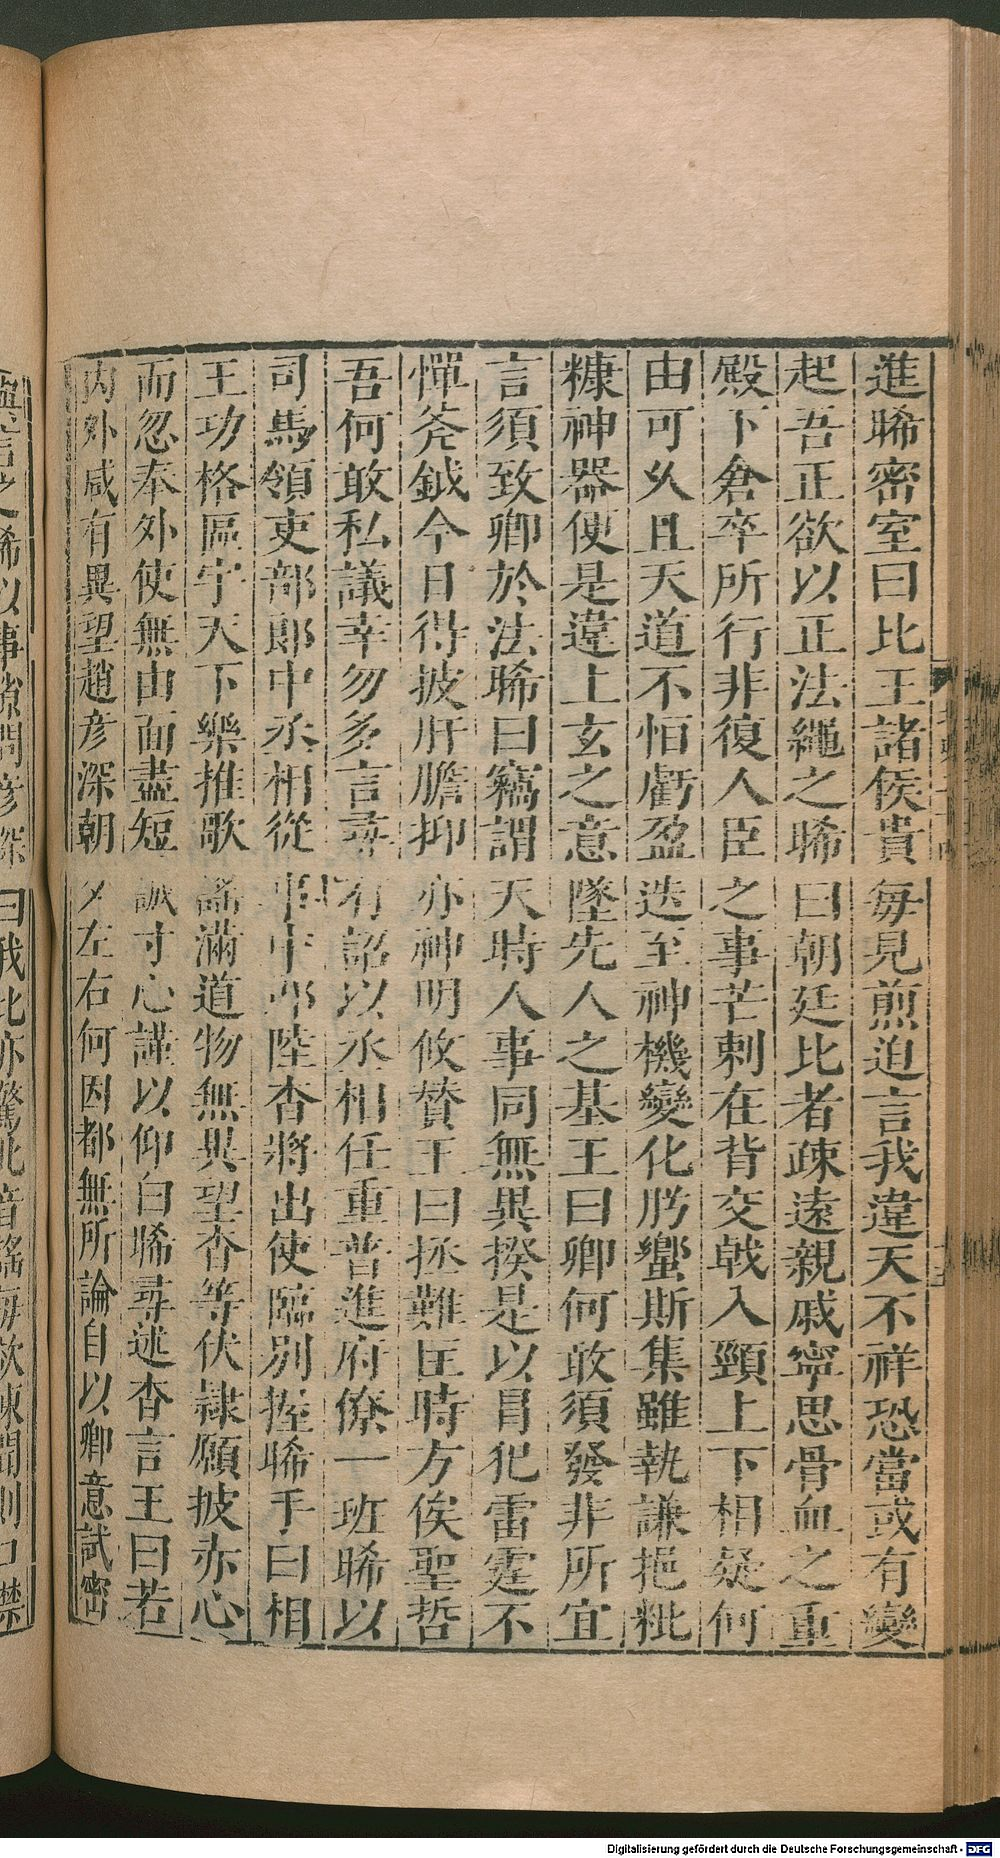 進晞密室曰比王諸侯貴每見煎迫言我違天不祥恐當或有變
起吾正欲以正法繩之晞曰朝廷比者疎遠親戚寧思骨血之重
殿下倉卒所行非復人臣之事芒刺在背交戟入頸上下相疑何
由可久且天道不恒虧盈迭至神機變化肸蠁斯集雖執謙挹粃
糠神器便是違上玄之意墜先人之基王曰卿何敢須發非所宜
言須致卿於法晞曰竊謂天時人事同無異揆是以冒犯雷霆不
憚斧鉞今日得披肝膽抑亦神明攸贊王曰拯難匡時方俟聖哲
吾何敢私議幸勿多言尋有詔以丞相任重普進府僚一班晞以
司馬領吏部郎中丞相從事中郎陸杳將出使臨別握晞手曰相
王功格區宇天下樂推歌謠滿道物無異望杳等伏隷願披赤心
而忽奉外使無由面盡短誠寸心謹以仰白晞尋述杳言王曰若
内外咸有異望趙彦深朝夕左右何因都無所論自以卿意試密
言之晞以事隙問彦深曰我比亦驚此音謠每欲陳聞則口噤
Digitalisierung gefördert durch die Deutsche Forschungsgemeinschaft - DFG